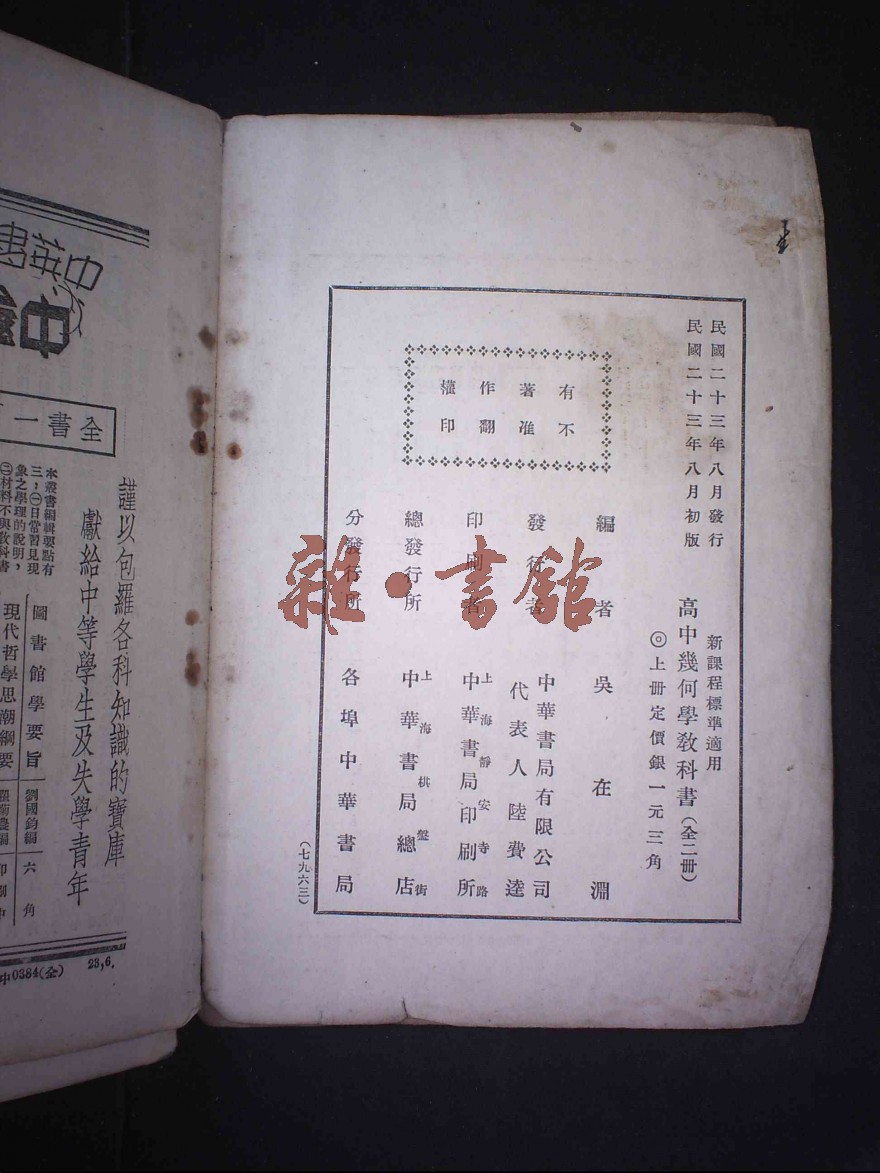 民國二十三年八月發行
民國二十三年八月初版
新課程標準適用
高中幾何學教科書(全二冊)
◎上册定價銀一元三角
有著作權
不准翻印
編者 吳在淵
發行者 中華書局有限公司
代表人 陸費逵
印刷者 上海靜安寺路
中華書局印刷所
總發行所 上海棋盤街
中華書局總店
分發行所 各埠中華書局
(七九六三)
雜·書館
中華書
全書一
謹以包羅各科知識的寶庫
獻給中等學生及失學青年
本叢書編輯要點有
三:㊀日常習見現
象之學理的說明,
㊁材料不與教科書
圖書館學要旨 劉國鈞編 六角
現代哲學思潮綱要 瞿菊農編 印刷中
中0384(全) 23,6.